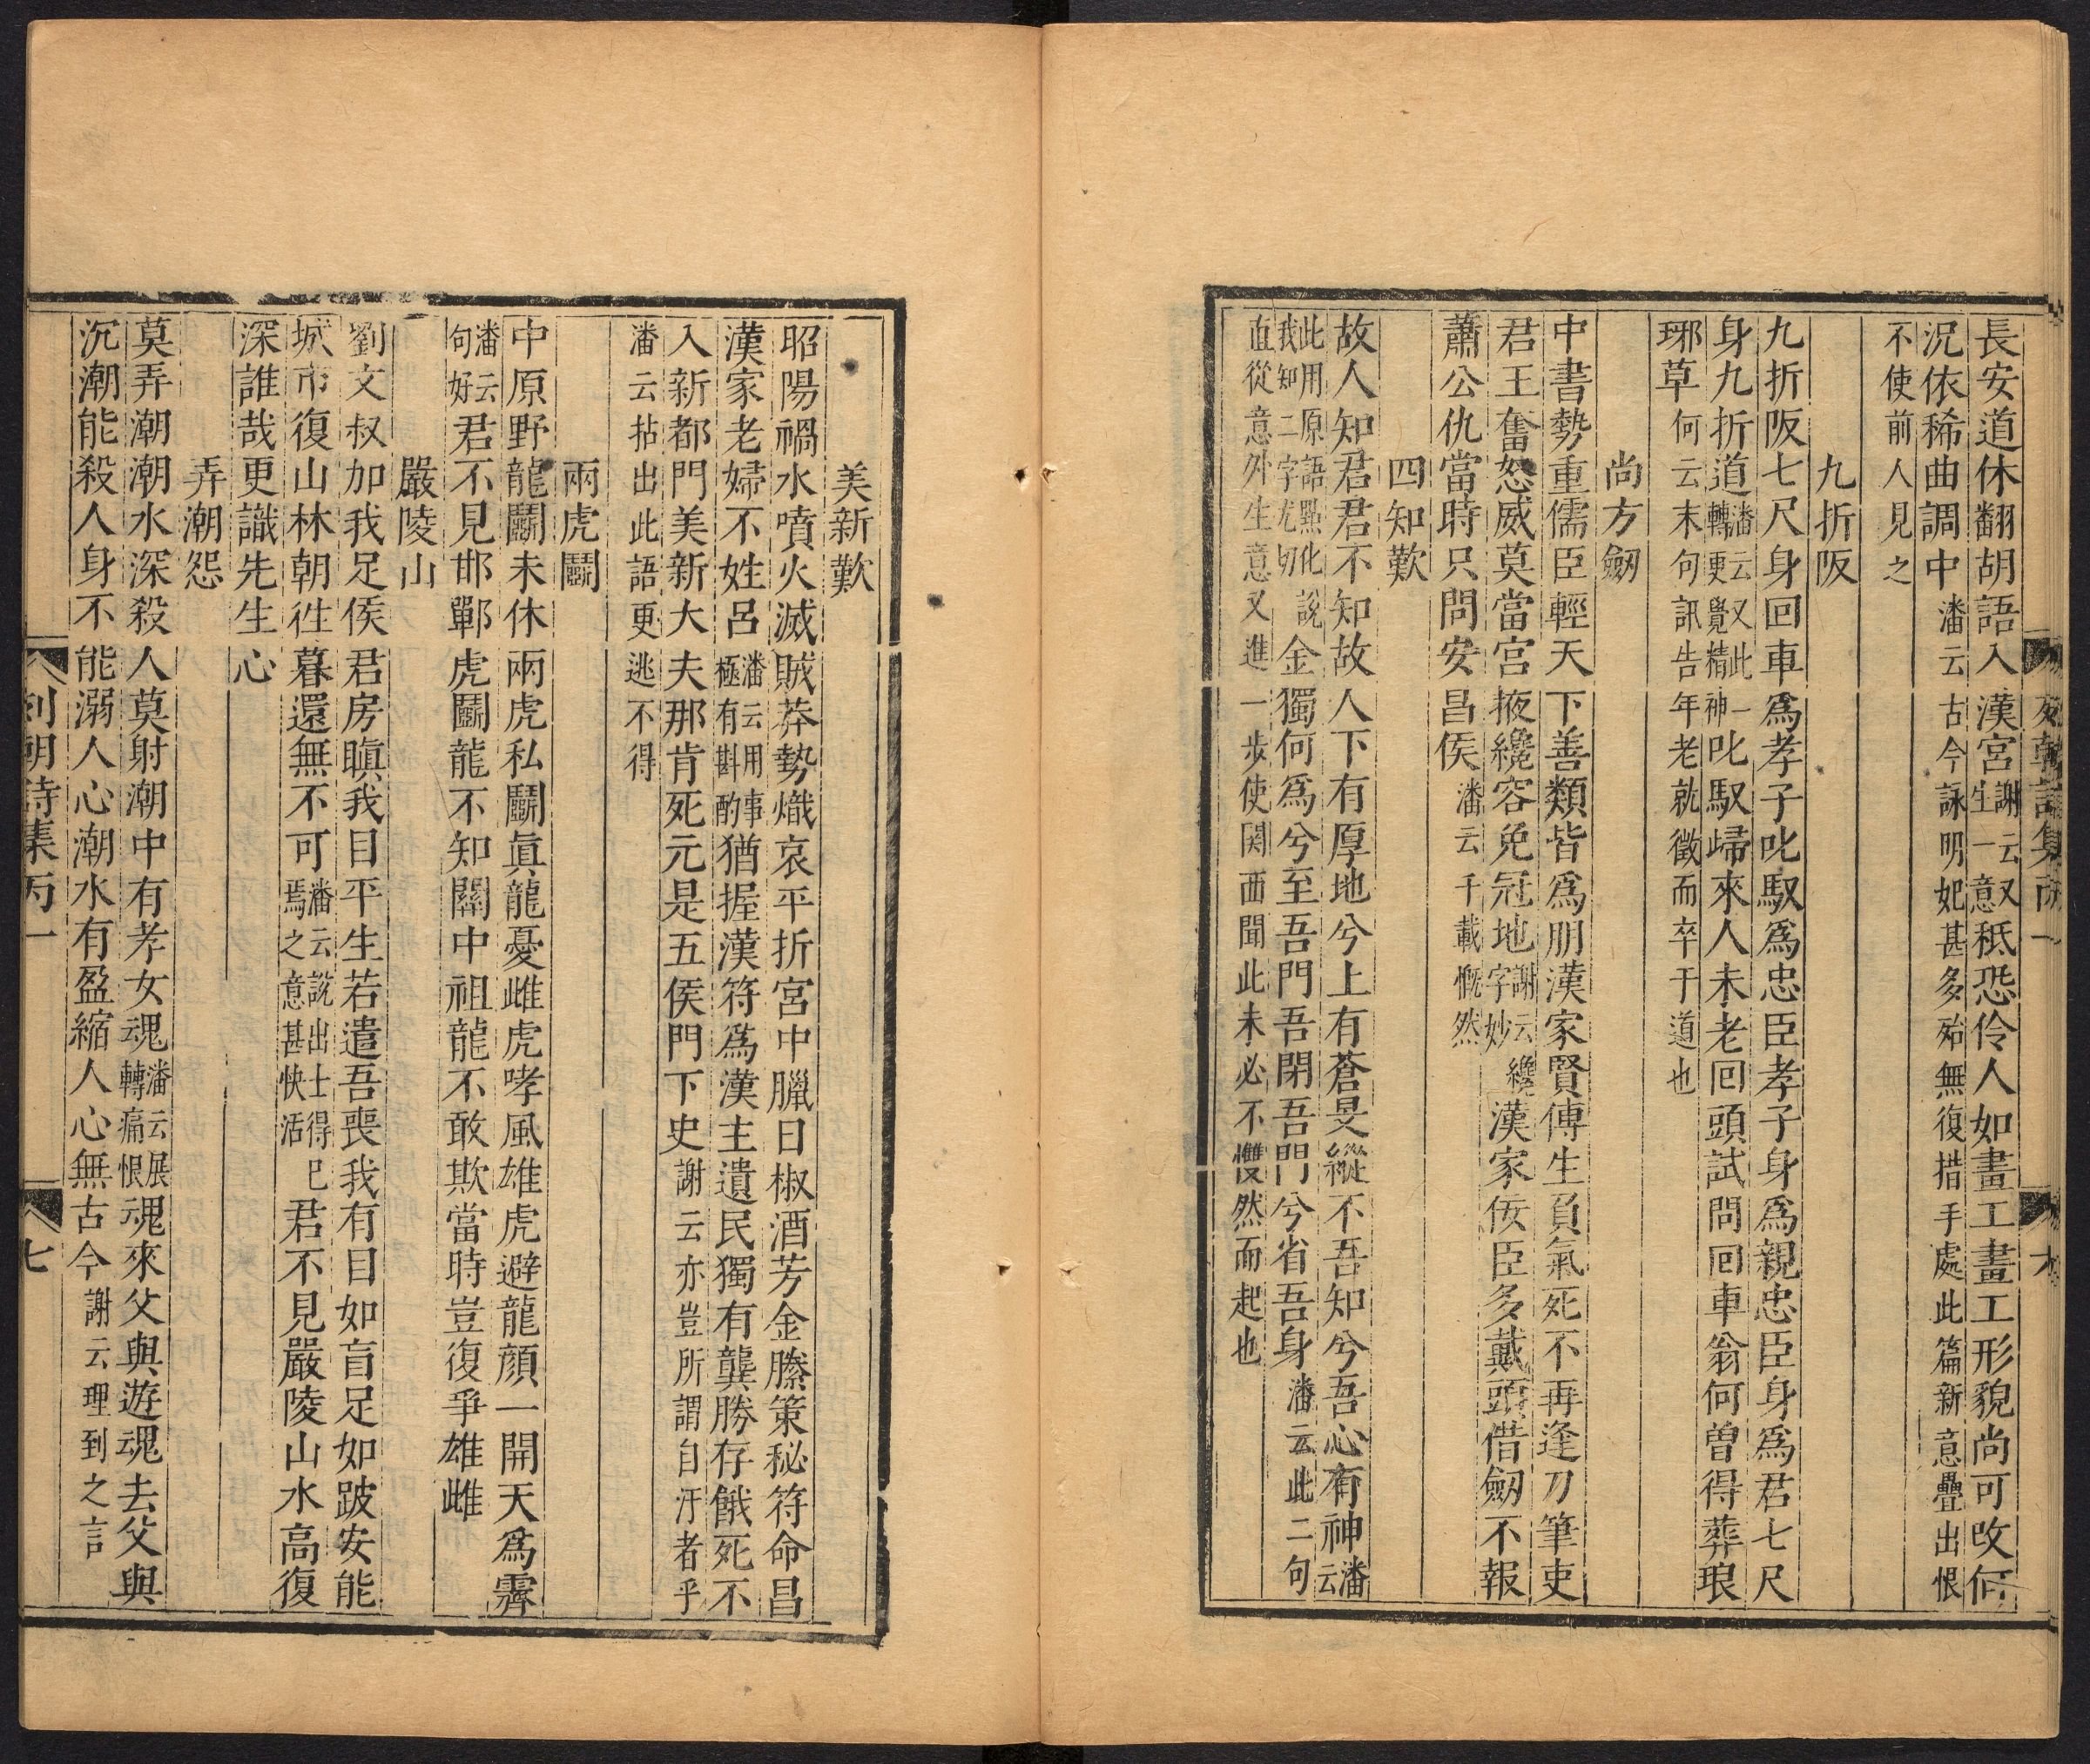 列朝詩集丙一 六
長安道休翻胡語入漢宮謝云又生一意秪恐伶人如畫工畫工形貌尚可改何
況依稀曲調中潘云古今詠明妃甚多殆無復措手處此篇新意疊出恨
不使前人見之
九折阪
九折阪七尺身回車爲孝子叱馭爲忠臣孝子身爲親忠臣身爲君七尺
身九折道潘云又此一轉更覺精神叱馭歸來人未老回頭試問回車翁何曾得葬琅
琊草何云末句訊告年老就徵而卒于道也
尚方劒
中書勢重儒臣輕天下善類皆爲朋漢家賢傅生負氣死不再逢刀筆吏
君王奮怒威莫當宮掖纔容免冠地謝云纔字妙漢家佞臣多戴頭借劒不報
蕭公仇當時只問安昌侯潘云千載慨然
四知歎
故人知君君不知故人下有厚地兮上有蒼旻縱不吾知兮吾心有神潘云
此用原語點化說我知二字尤切金獨何爲兮至吾門吾閉吾門兮省吾身潘云此二句
直從意外生意又進一步使関西聞此未必不戄然而起也
美新歎
昭陽禍水噴火滅賊莽勢熾哀平折宮中臘日椒酒芳金縢策秘符命昌
漢家老婦不姓呂潘云用事極有斟酌猶握漢符爲漢主遺民獨有龔勝存餓死不
入新都門美新大夫那肯死元是五侯門下史謝云亦豈所謂自汙者乎
潘云拈出此語更逃不得
兩虎鬭
中原野龍鬭未休兩虎私鬭眞龍憂雌虎哮風雄虎避龍顔一開天爲霽
潘云句好君不見邯鄲虎鬭龍不知關中祖龍不敢欺當時豈復爭雄雌
嚴陵山
劉文叔加我足侯君房瞋我目平生若遣吾喪我有目如盲足如跛安能
城市復山林朝徃暮還無不可潘云說出士得已焉之意甚快活君不見嚴陵山水高復
深誰哉更識先生心
弄潮怨
莫弄潮潮水深殺人莫射潮中有孝女魂潘云展轉痛恨魂來父與遊魂去父與
沉潮能殺人身不能溺人心潮水有盈縮人心無古今謝云理到之言
列朝詩集丙一 七